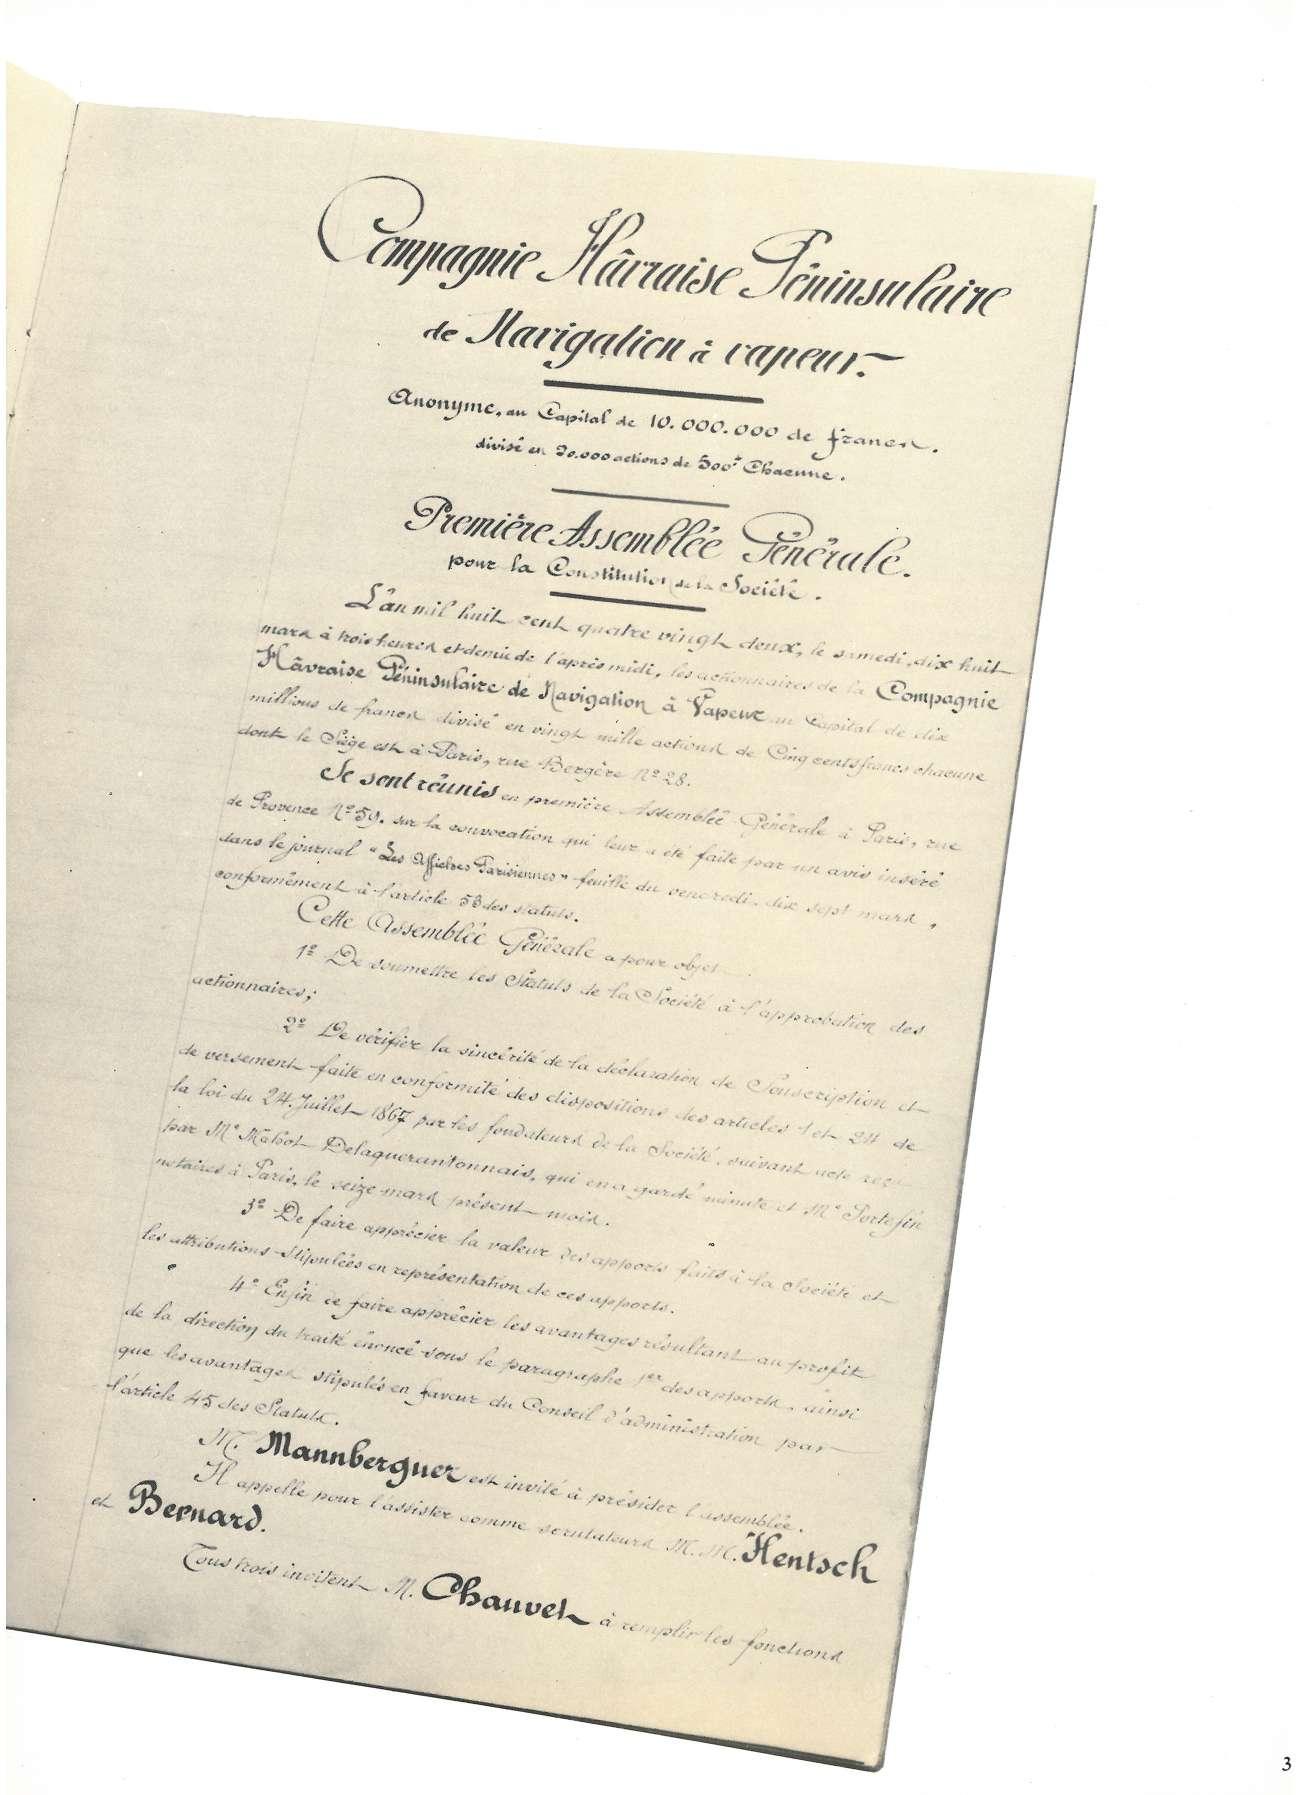 Compagnie Hâvraise Péninsulaire
de Navigation à vapeur.
Anonyme, au Capital de 10.000.000 de francs.
divisé en 20.000 actions de 500f Chacune.
Première Assemblée Générale.
pour la Constitution de la Société.
L'an mil huit cent quatre vingt deux, le samedi, dix huit
mars à trois heures et demie de l'après midi, les actionnaires de la Compagnie
Hâvraise Péninsulaire de Navigation à Vapeur au Capital de dix
millions de francs divisé en vingt mille actions de Cinq cents francs chacune
dont le Siège est à Paris, rue Bergère No 28.
Se sont réunis en première Assemblée Générale à Paris, rue
de Provence No 59. sur la convocation qui leur a été faite par un avis inséré
dans le journal "Les Affiches Parisiennes" feuille du vendredi, dix sept mars,
conformément à l'article 53 des statuts.
Cette Assemblée Générale a pour objet
1o De soumettre les Statuts de la Société à l'approbation des
actionnaires;
2o De vérifier la sincérité de la déclaration de Souscription et
de versement faite en conformité des dispositions des articles 1 et 24 de
la loi du 24 Juillet 1867 par les fondateurs de la Société, suivant acte reçu
par Me Mâhot Delaquerantonnais, qui en a gardé minute et Me Portefin
notaires à Paris, le seize mars présent mois.
3o De faire apprécier la valeur des apports faits à la Société et
les attributions stipulées en représentation de ces apports.
4o Enfin de faire apprécier les avantages résultant au profit
de la direction du traité énoncé sous le paragraphe 1er des apports, ainsi
que les avantages stipulés en faveur du Conseil d'administration par
l'article 45 des Statuts.
M. Mannberguer est invité à présider l'assemblée.
Il appelle pour l'assister comme scrutateurs M. M. Hentsch
et Bernard.
Tous trois invitent M. Chauvet à remplir les fonctions
3